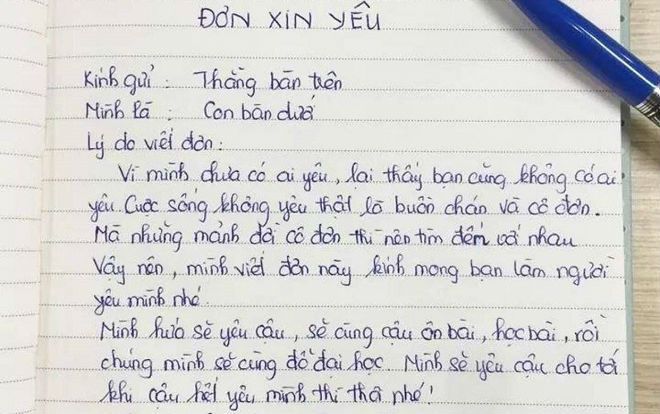 ĐƠN XIN YÊU
Kính gửi : Thằng bàn trên
Mình là : Con bàn dưới
Lý do viết đơn :
Vì mình chưa có ai yêu, lại thấy bạn cũng không có ai
yêu. Cuộc sống không yêu thật là buồn chán và cô đơn.
Mà những mảnh đời cô đơn thì nên tìm đến với nhau
Vậy nên, mình viết đơn này kính mong bạn làm người
yêu mình nhé.
Mình hứa sẽ yêu cậu, sẽ cùng cậu ôn bài, học bài, rồi
chúng mình sẽ cùng đỗ đại học. Mình sẽ yêu cậu cho tới
khi cậu hết yêu mình thì thôi nhé!